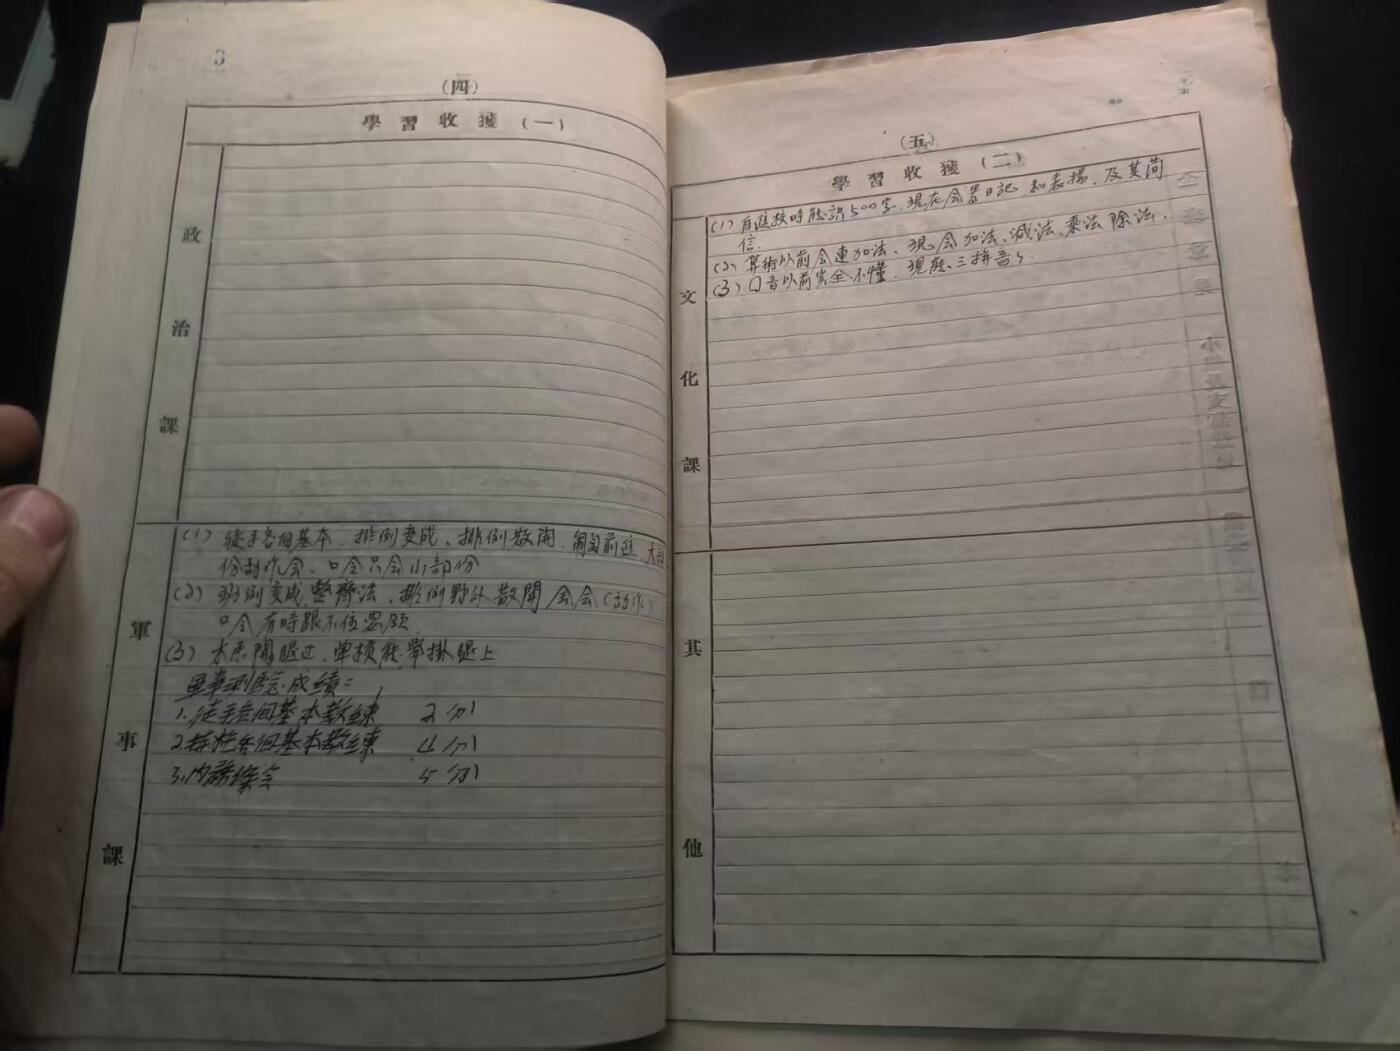 3
(四)
學習收獲(一)
政治課
軍事課
(1) 徒手各個基本、排例变成、排例散開、匍匐前進 大部
份动作会、口令只会小部份
(2) 班例变成整齊法、排例野外散開全会(动作)
口令有时跟不住要領
(3) 木馬開腿过、单杠能单掛腿上
軍事测验成績:
1.徒手各個基本教練 2分
2.持枪各個基本教練 4分
3.内務綜合 5分
(五)
學習收獲(二)
文化課
(1) 自進校時能認500字、現在会写日記、和表揚、及其简
信.
(2) 算術以前会連加法、現会加法、減法、乘法 除法、
(3) 口音以前完全不懂、現能、三拼音
其他